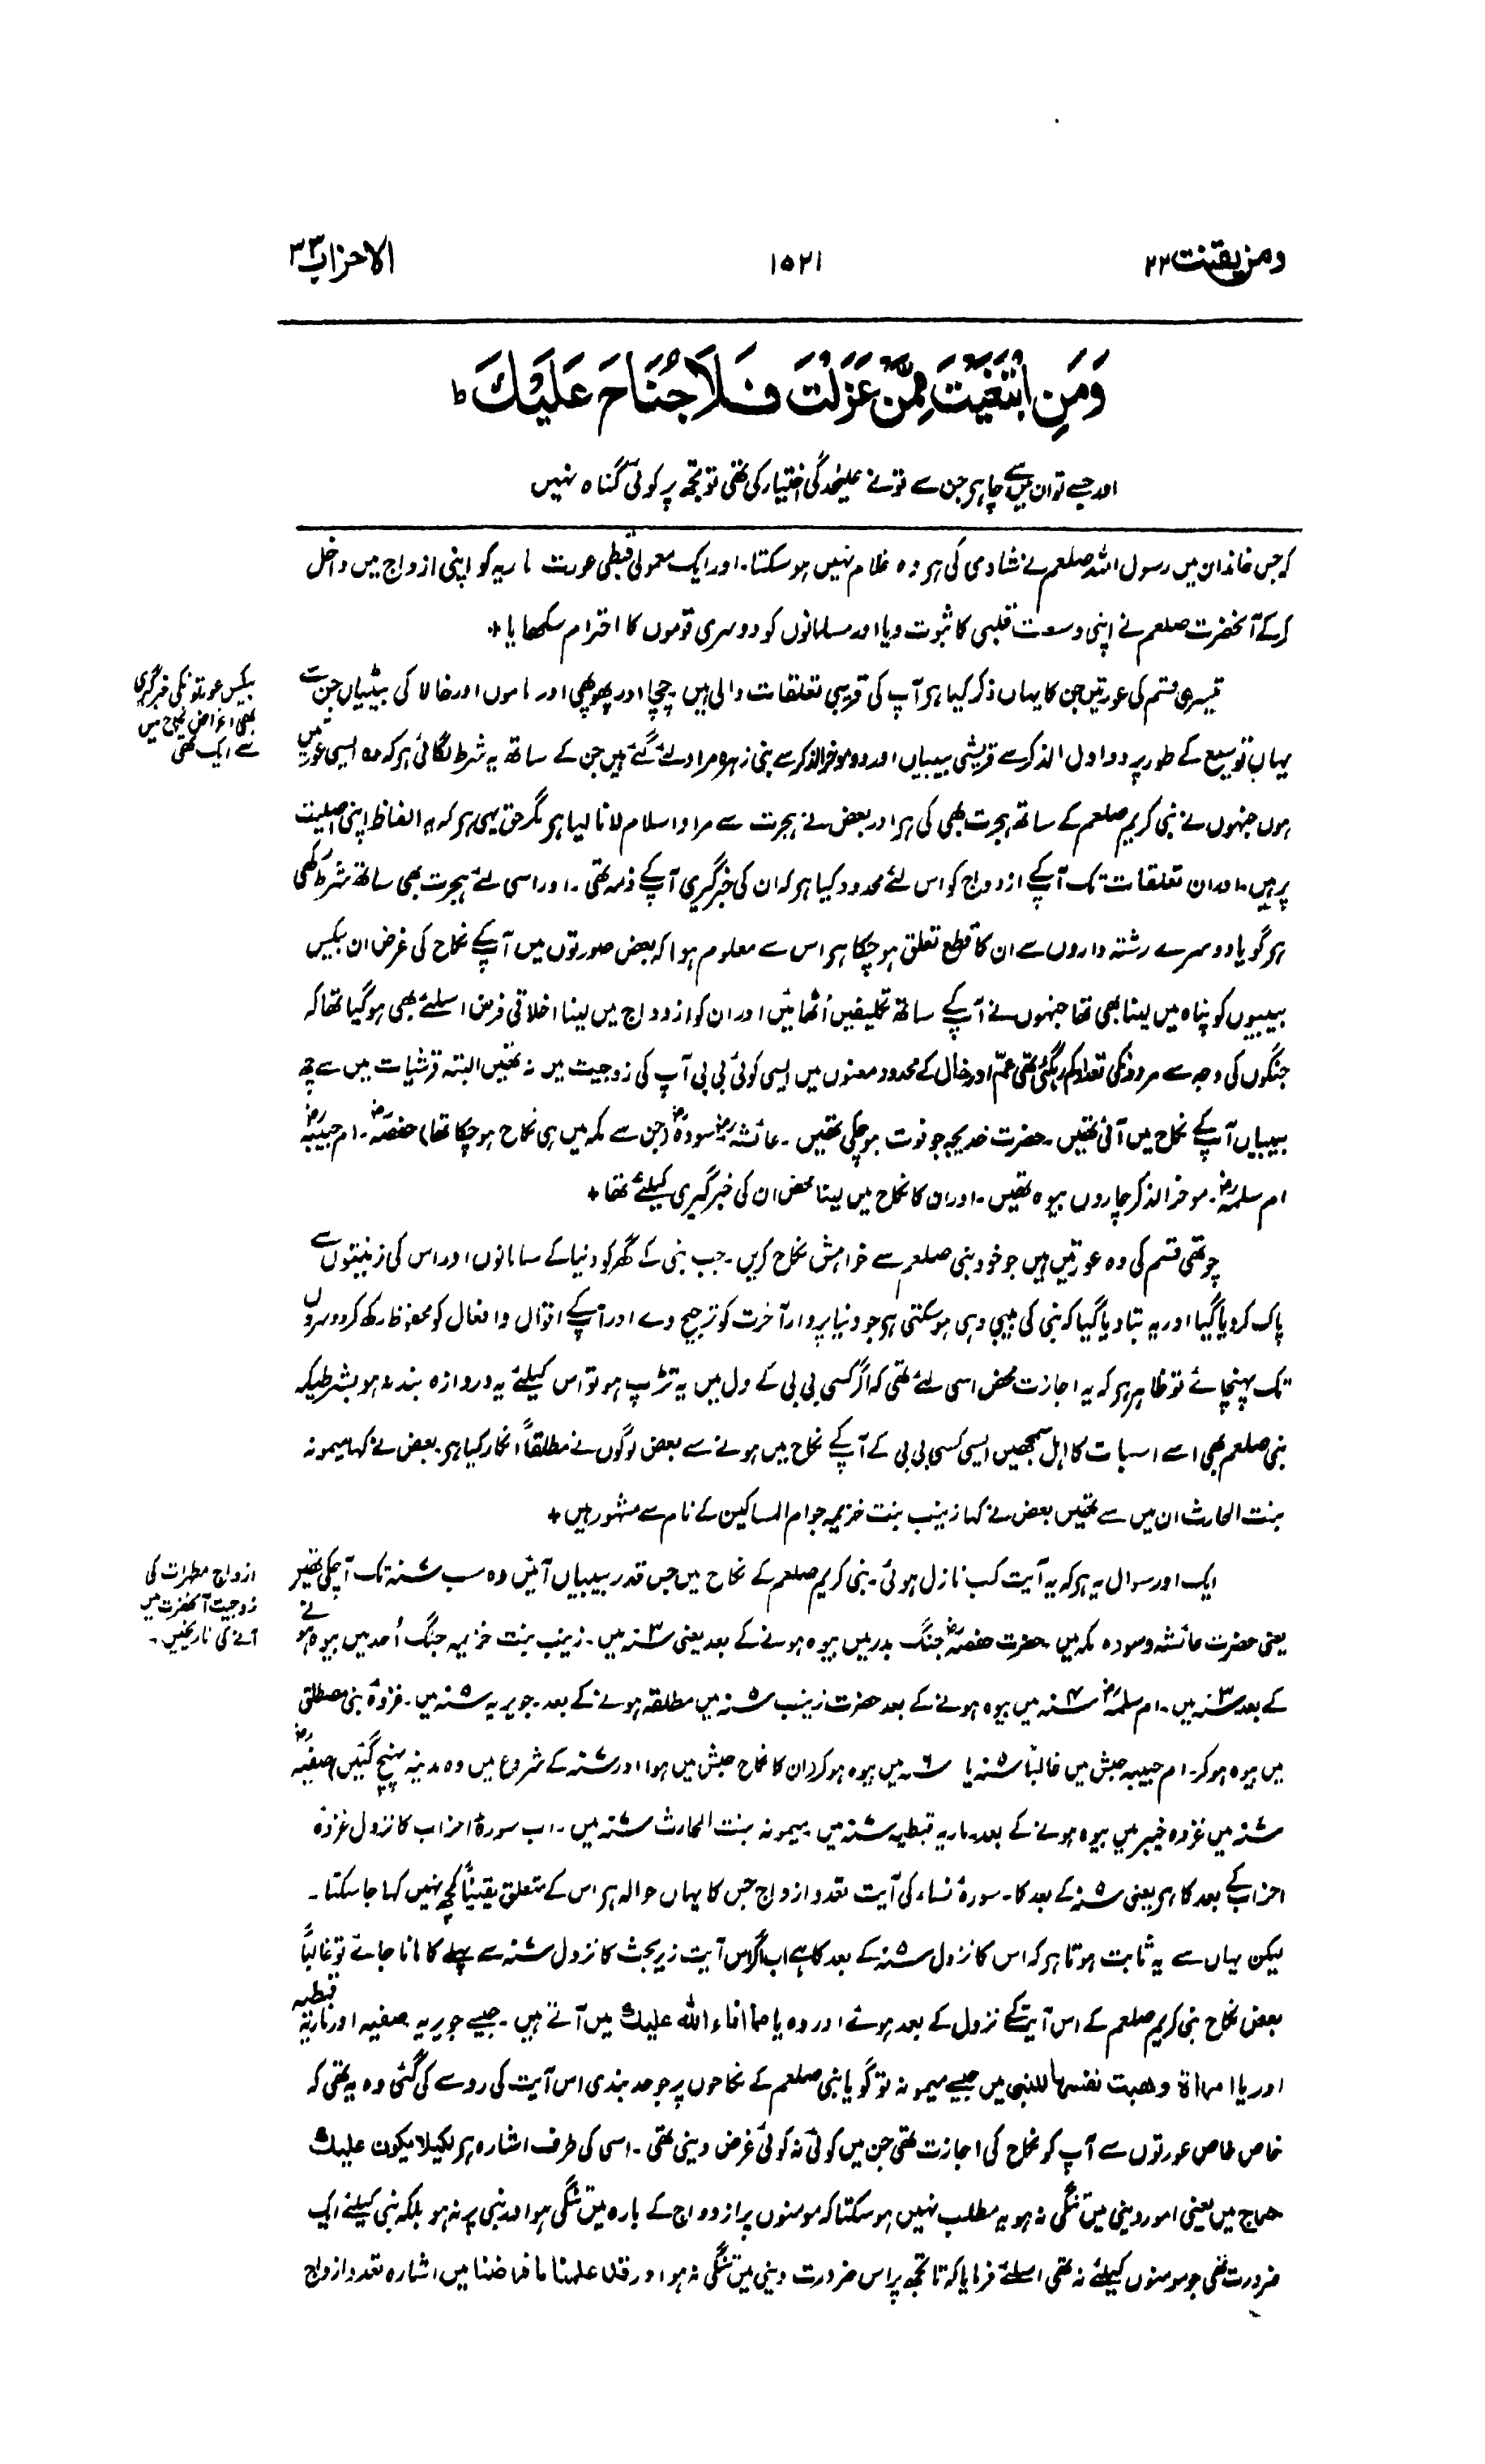 ومن یقنت ۲۲
۱۵۲۱
الاحزاب ۳۳
وَمَنِ ابْتَغَيْتَ مِمَّنْ عَزَلْتَ فَلَا جُنَاحَ عَلَيْكَ ط
اور جسے تو ان میں سے چاہے جن سے تو نے علیٰحدگی اختیار کی تھی تو تجھ پر کوئی گناہ نہیں
کہ جس خاندان میں رسول اللہ صلعم نے شادی کی ہو وہ غلام نہیں ہو سکتا۔ اور ایک معمولی قبطی عورت ماریہ کو اپنی ازواج میں داخل
کر کے آنحضرت صلعم نے اپنی وسعت قلبی کا ثبوت دیا اور مسلمانوں کو دوسری قوموں کا احترام سکھایا +
بیکس عورتونکی خبرگیری
بھی اغراض نکاح میں
سے ایک تھی
تیسری قسم کی عورتیں جن کا یہاں ذکر کیا ہے آپ کی قریبی تعلقات والی ہیں چچا اور پھوپھی اور ماموں اور خالا کی بیٹیاں جن سے
یہاں توسیع کے طور پر دو اول الذکر سے قریشی بیبیاں اور دو موخرالذکر سے بنی زہرہ مراد لئے گئے ہیں جن کے ساتھ یہ شرط لگائی ہے کہ وہ ایسی عورتیں
ہوں جنہوں نے نبی کریم صلعم کے ساتھ ہجرت بھی کی ہو اور بعض نے ہجرت سے مراد اسلام لانا لیا ہے مگر حق یہی ہے کہ یہ الفاظ اپنی اصلیت
پر ہیں۔ اور ان تعلقات تک آپکے ازدواج کو اس لئے محدود کیا ہے کہ ان کی خبرگیری آپکے ذمہ تھی۔ اور اسی لئے ہجرت بھی ساتھ شرط رکھی
ہے گویا دوسرے رشتہ داروں سے ان کا قطع تعلق ہو چکا ہے اس سے معلوم ہوا کہ بعض صورتوں میں آپکے نکاح کی غرض ان بیکس
بیبیوں کو پناہ میں لینا بھی تھا جنہوں نے آپکے ساتھ تکلیفیں اُٹھائیں اور ان کو ازدواج میں لینا اخلاقی فرض اسلئے بھی ہوگیا تھا کہ
جنگوں کی وجہ سے مردونکی تعداد کم رہگئی تھی عمّ اور خال کے محدود معنوں میں ایسی کوئی بی بی آپ کی زوجیت میں نہ تھیں البتہ قرشیات میں سے چھ
بیبیاں آپکے نکاح میں آئی تھیں۔ حضرت خدیجہ جو فوت ہوچکی تھیں۔ عائشہؓ سودہؓ (جن سے مکہ میں ہی نکاح ہوچکا تھا) حفصہؓ۔ ام حبیبہؓ
ام سلمہؓ۔ موخرالذکر چاروں بیوہ تھیں۔ اور ان کا نکاح میں لینا محض ان کی خبر گیری کیلئے تھا +
چوتھی قسم کی وہ عورتیں ہیں جو خود نبی صلعم سے خواہش نکاح کریں۔ جب نبی کے گھر کو دنیا کے سامانوں اور اس کی زینتوں سے
پاک کردیا گیا اور یہ بتا دیا گیا کہ نبی کی بیبی وہی ہوسکتی ہے جو دنیا پر دار آخرت کو ترجیح دے اور آپکے اقوال و افعال کو محفوظ رکھ کر دوسروں
تک پہنچائے تو ظاہر ہے کہ یہ اجازت محض اسی لئے تھی کہ اگر کسی بی بی کے دل میں یہ تڑپ ہو تو اس کیلئے یہ دروازہ بند نہ ہو بشرطیکہ
نبی صلعم بھی اسے اسبات کا اہل سمجھیں ایسی کسی بی بی کے آپکے نکاح میں ہونے سے بعض لوگوں نے مطلقاً انکار کیا ہے۔ بعض نے کہا میمونہ
بنت الحارث ان میں سے تھیں بعض نے کہا زینب بنت خزیمہ جو ام المساکین کے نام سے مشہور ہیں +
ازواج مطہرات کی
زوجیت آنحضرت میں
آنے کی تاریخیں۔
ایک اور سوال یہ ہے کہ یہ آیت کب نازل ہوئی۔ نبی کریم صلعم کے نکاح میں جس قدر بیبیاں آئیں وہ سب ۷؁ تک آچکی تھیں
یعنی حضرت عائشہ و سودہ مکہ میں۔ حضرت حفصہؓ جنگ بدر میں بیوہ ہونے کے بعد یعنی ۳؁ میں۔ زینب بنت خزیمہ جنگ اُحد میں بیوہ ہونے
کے بعد ۳؁ میں۔ ام سلمہؓ ۴؁ میں بیوہ ہونے کے بعد حضرت زینب ۵؁ میں مطلقہ ہونے کے بعد۔ جویریہ ۵؁ میں۔ غزوہٴ بنی مصطلق
میں بیوہ ہوکر۔ ام حبیبہ حبش میں غالباً ۵؁ یا ۶؁ میں بیوہ ہوکر (ان کا نکاح حبش میں ہوا اور ۷؁ کے شروع میں وہ مدینہ پہنچ گئیں) صفیہؓ
۷؁ میں غزوہ خیبر میں بیوہ ہونے کے بعد۔ ماریہ قبطیہ ۷؁ میں میمونہ بنت الحارث ۷؁ میں۔ اب سورۃ احزاب کا نزول غزوہٴ
احزاب کے بعد کا ہے یعنی ۵؁ کے بعد کا۔ سورہٴ نساء کی آیت تعدد ازواج جس کا یہاں حوالہ ہے اس کے متعلق یقیناً کچھ نہیں کہا جا سکتا۔
لیکن یہاں سے یہ ثابت ہوتا ہے کہ اس کا نزول ۵؁ کے بعد کا ہے اب اگر اس آیت زیر بحث کا نزول ۷؁ سے پہلے کا مانا جائے تو غالباً
بعض نکاح نبی کریم صلعم کے اس آیت کے نزول کے بعد ہوئے اور وہ یا مما افاء الله علیك میں آتے ہیں۔ جیسے جویریہ صفیہ اور ماریہ قبطیہ
اور یا امراة وهبت نفسها للنبی میں جیسے میمونہ تو گویا نبی صلعم کے نکاحوں پر جو حد بندی اس آیت کی رو سے کی گئی وہ یہ تھی کہ
خاص خاص عورتوں سے آپ کو نکاح کی اجازت تھی جن میں کوئی نہ کوئی غرض دینی تھی۔ اسی کی طرف اشارہ ہے لکیلا یکون علیك
حرج میں یعنی امور دینی میں تنگی نہ ہو یہ مطلب نہیں ہو سکتا کہ مومنوں پر ازدواج کے بارہ میں تنگی ہو اور نبی پر نہ ہو بلکہ نبی کیلئے ایک
ضرورت تھی جو مومنوں کیلئے نہ تھی اسلئے فرمایا کہ تا تجھ پر اس ضرورت دینی میں تنگی نہ ہو اور قد علمنا ما فرضنا میں اشارہ تعدد ازواج